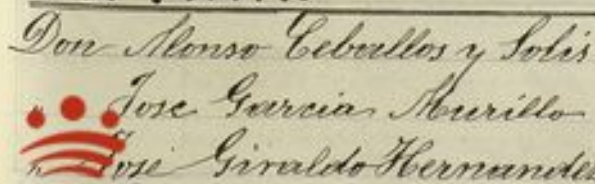 Don Alonso Ceballos y Solis
" Jose Garcia Murillo
" José Giraldo Hernandez